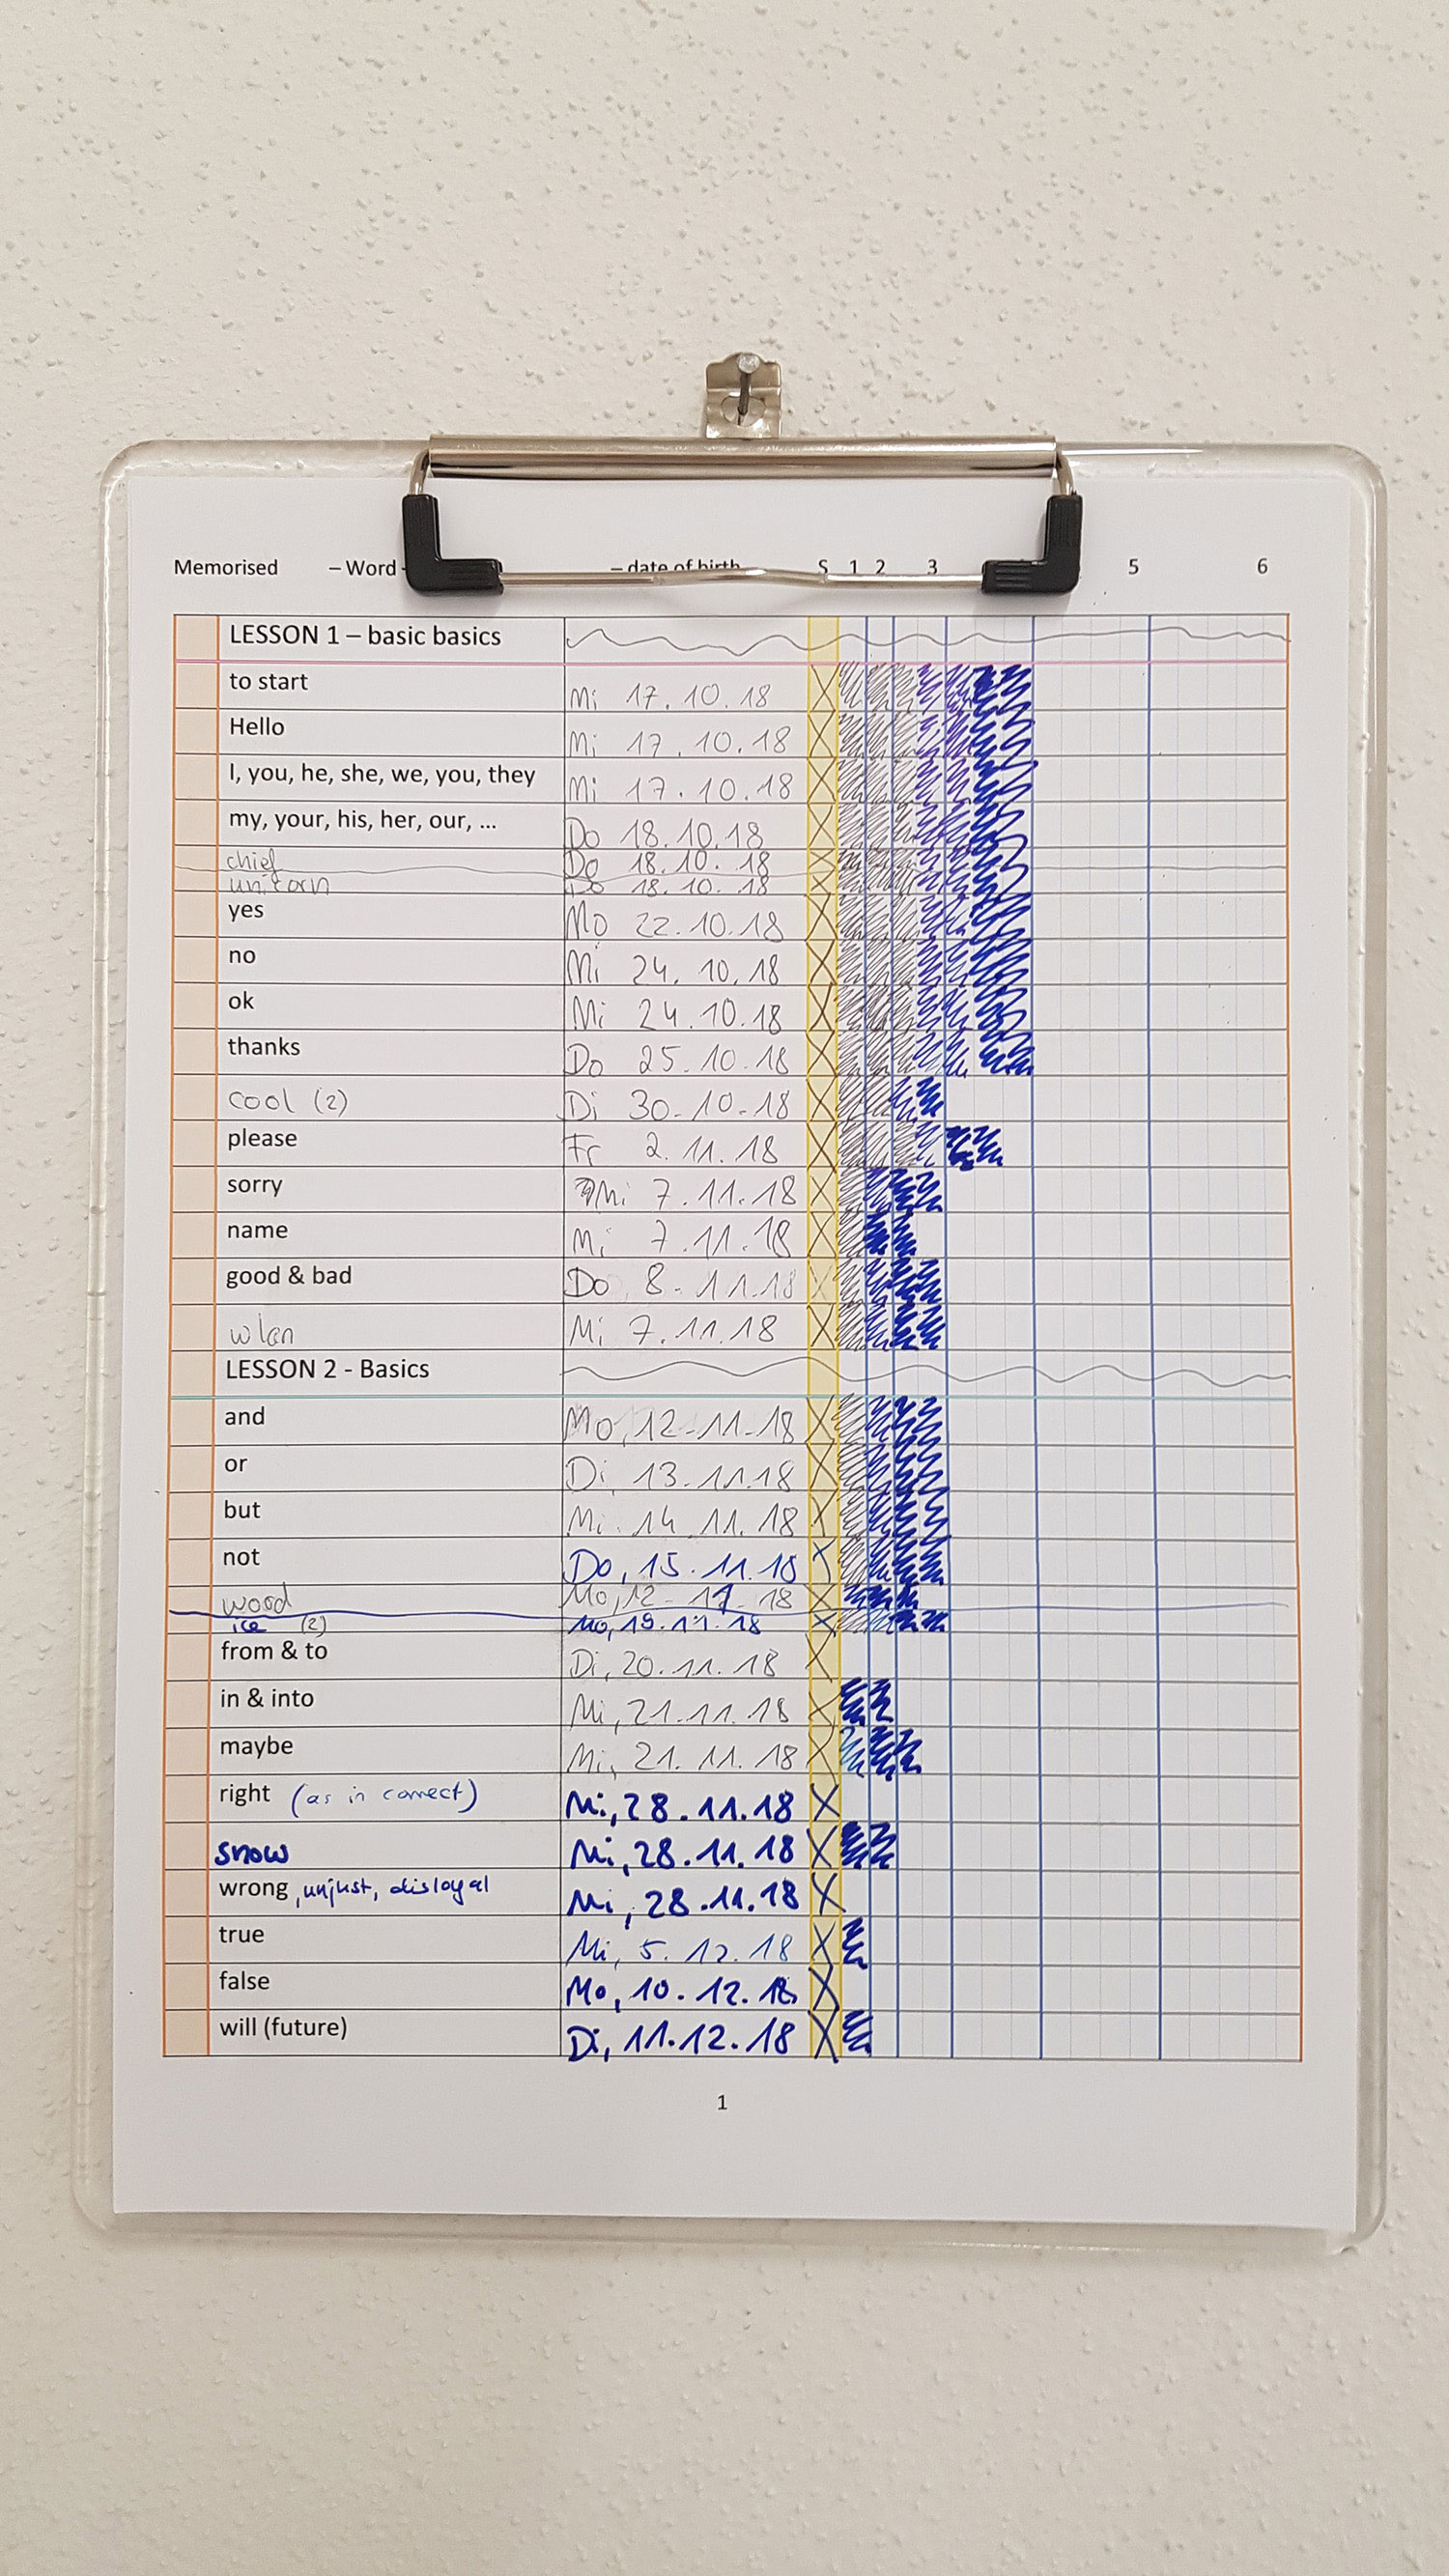 Memorised – Word – – date of birth S 1 2 3 5 6
LESSON 1 – basic basics
to start Mi 17.10.18
Hello Mi 17.10.18
I, you, he, she, we, you, they Mi 17.10.18
my, your, his, her, our, ... Do 18.10.18
chief Do 18.10.18
unicorn Do 18.10.18
yes Mo 22.10.18
no Mi 24.10.18
ok Mi 24.10.18
thanks Do 25.10.18
cool (2) Di 30-10-18
please Fr 2.11.18
sorry Mi 7.11.18
name Mi 7.11.18
good & bad Do 8.11.18
wlan Mi 7.11.18
LESSON 2 - Basics
and Mo, 12-11-18
or Di, 13.11.18
but Mi. 14.11.18
not Do, 15.11.18
wood Mo, 12-11-18
ice (2) Mo, 19.11.18
from & to Di, 20.11.18
in & into Mi, 21.11.18
maybe Mi, 21.11.18
right (as in correct) Mi, 28.11.18
snow Mi, 28.11.18
wrong, unjust, disloyal Mi, 28.11.18
true Mi, 5.12.18
false Mo, 10.12.18
will (future) Di, 11.12.18
1